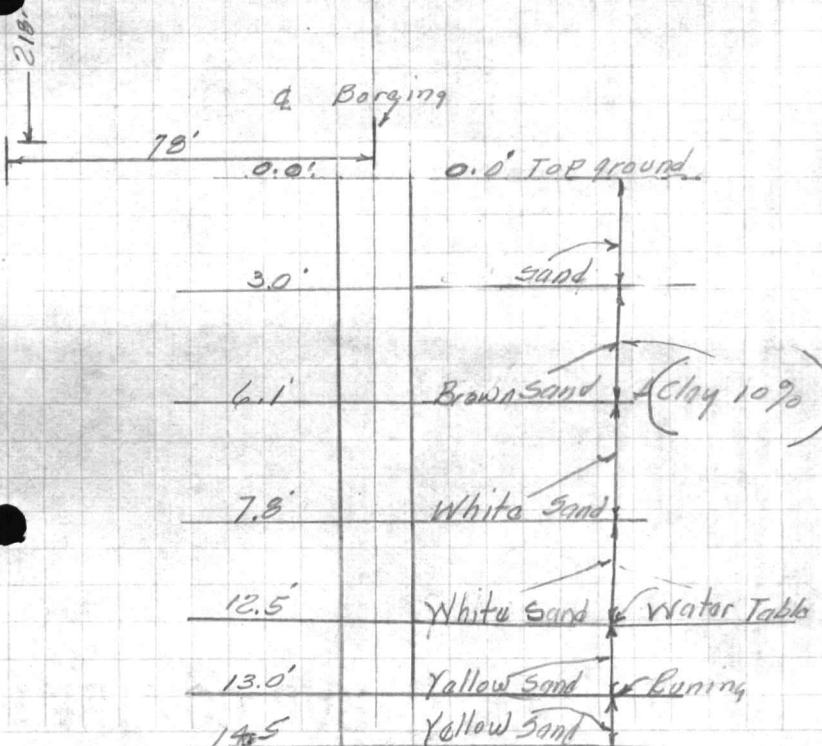 218'
℄ Borging
78'
0.0' 0.0' Top ground
Sand
3.0'
6.1' Brown Sand & (Clay 10%)
7.8' White Sand
12.5' White Sand Water Table
13.0' Yallow Sand Runing
Yellow Sand